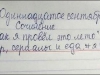 Одиннадцатое сентября
Сочинение
Как я провёл это лето
сериалы и еда